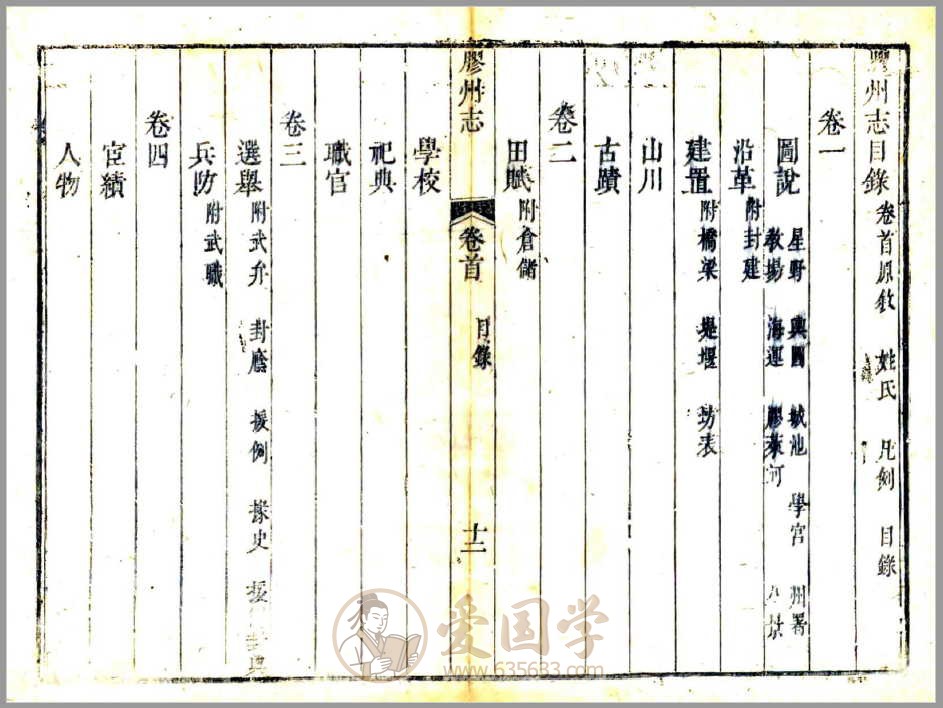 膠州志目錄 卷首原敘 姓氏 凡例 目錄
卷一
圖說 星野 輿圖 城池 學宮 州署 教場 海運 膠萊河 八景
沿革 附封建
建置 附橋梁 堤堰 坊表
山川
古蹟
卷二
田賦 附倉儲
膠州志 卷首 目錄 十二
學校
祀典
職官
卷三
選舉 附武弁 封廕 援例 掾史
兵防 附武職
卷四
宦績
人物
爱国学
www.635633.com